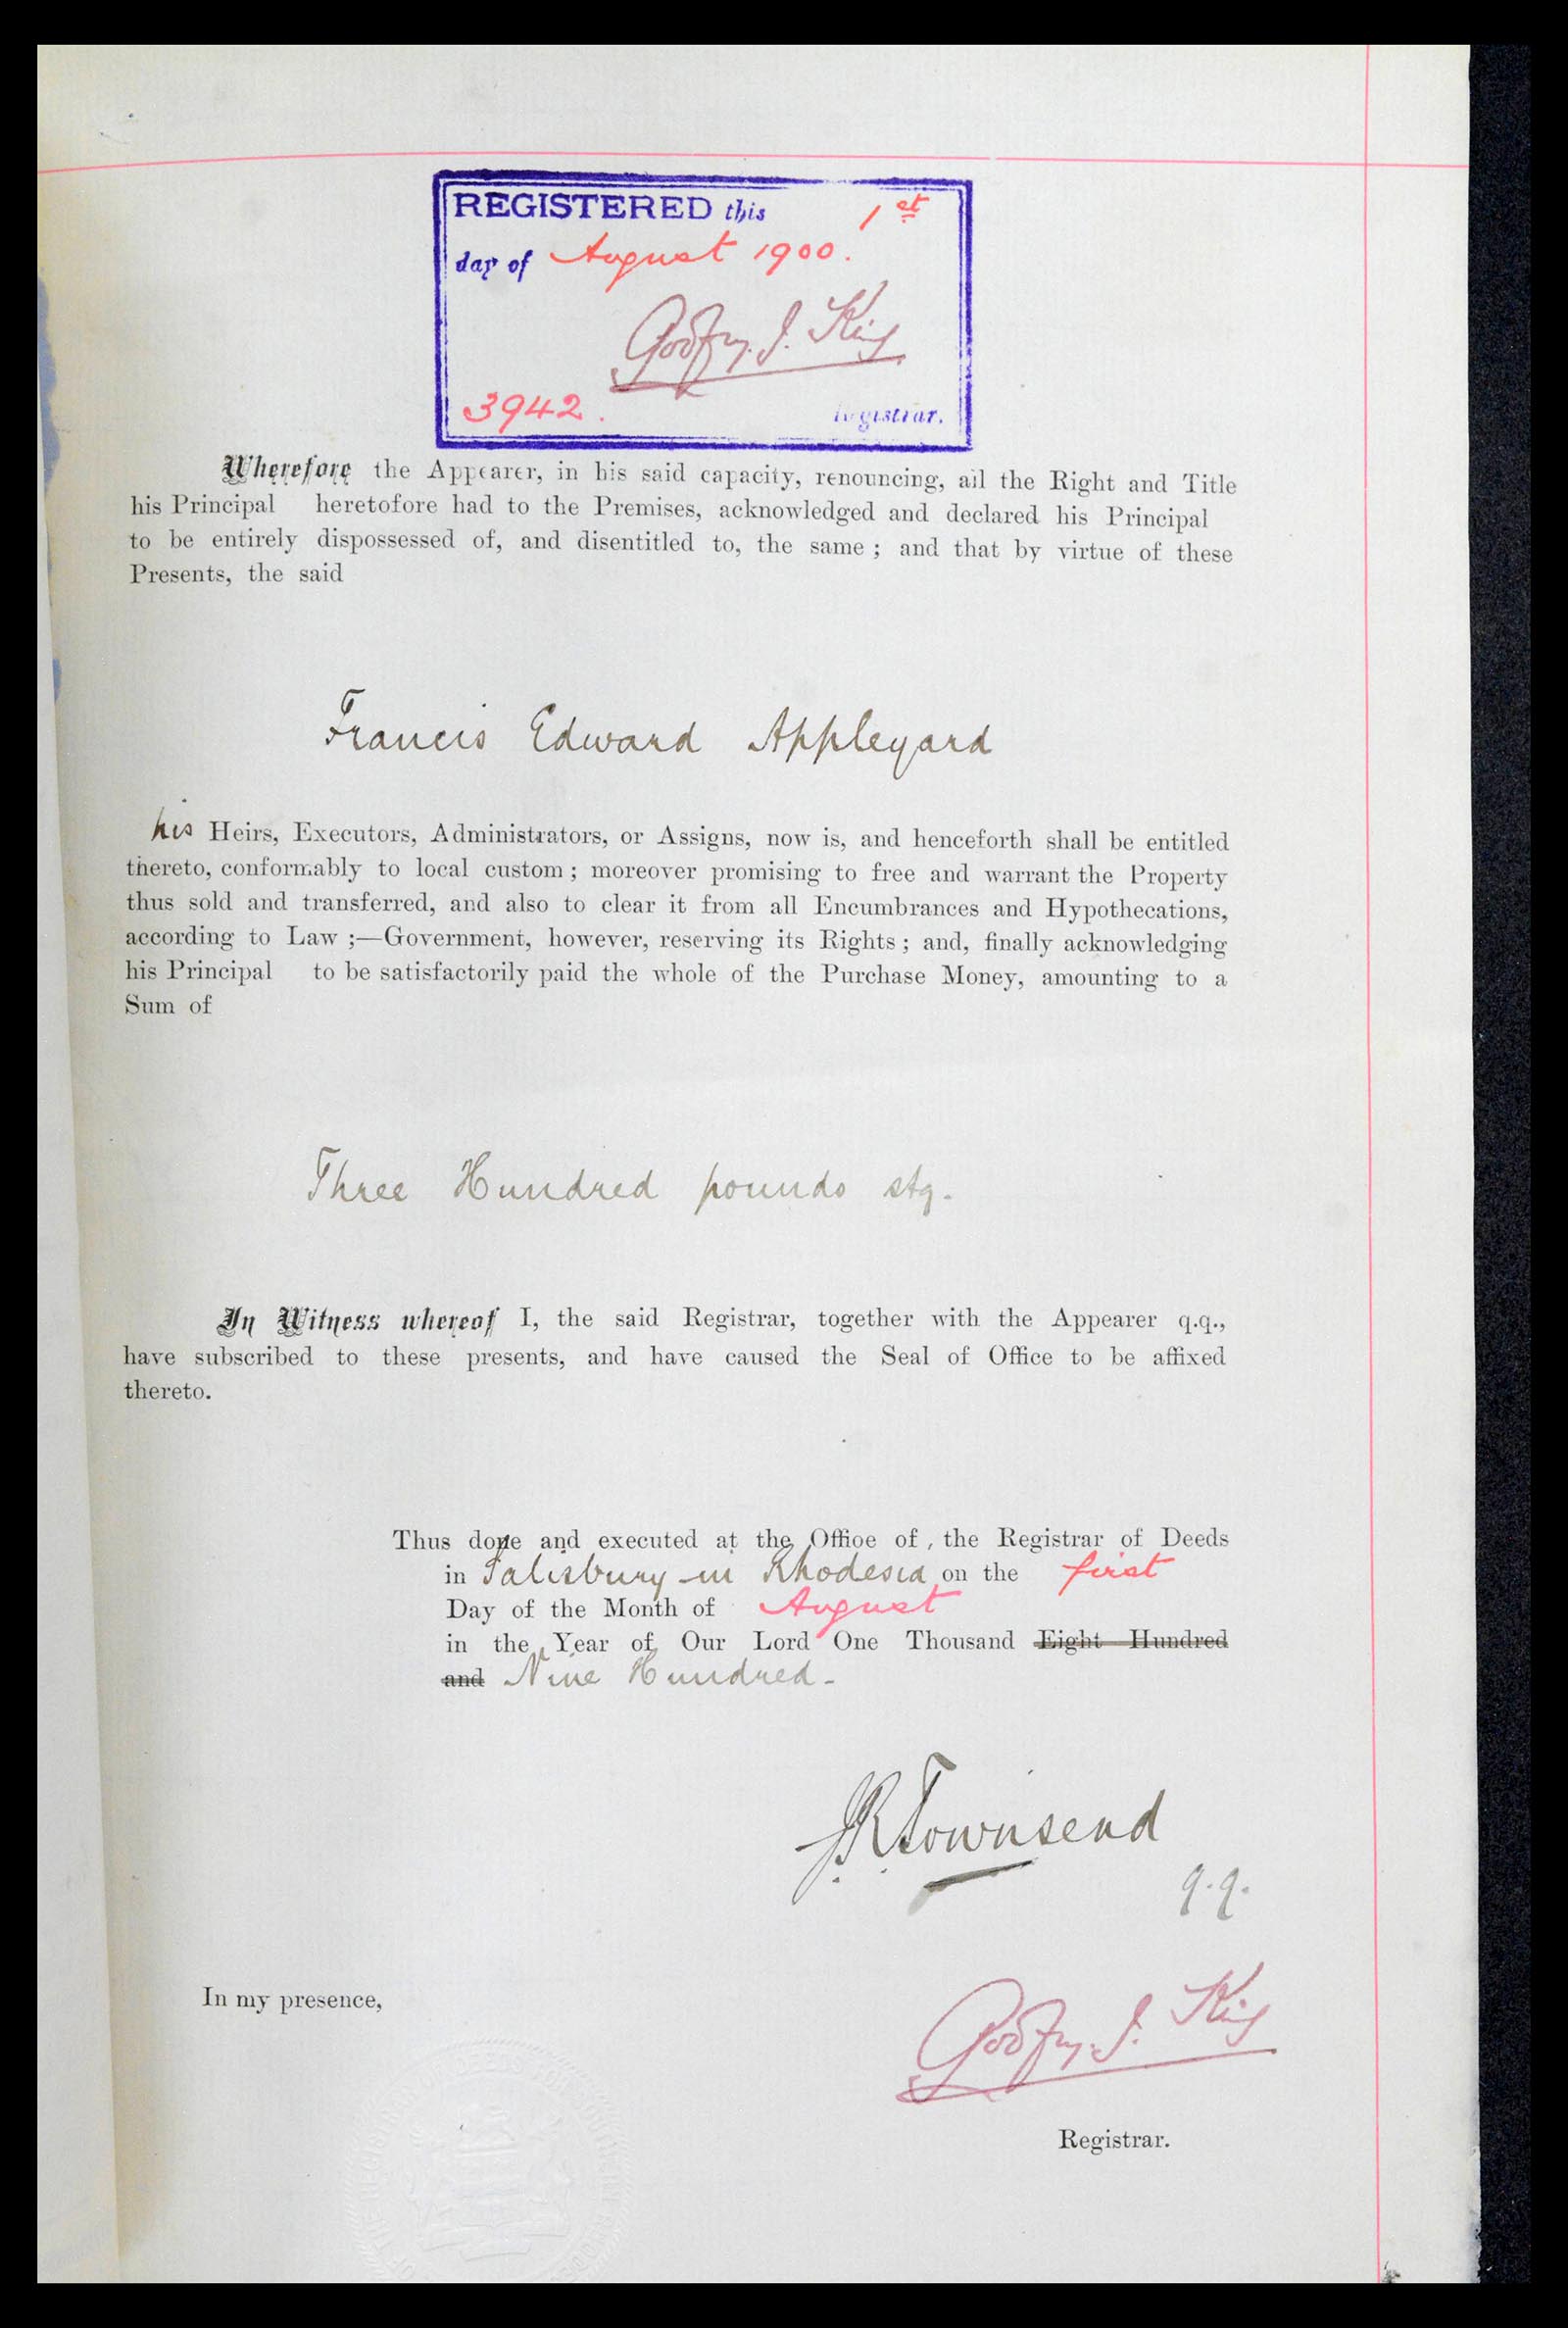 REGISTERED this 1st
day of August 1900.
Godfrey J. King
3942. Registrar.
Wherefore the Appearer, in his said capacity, renouncing, all the Right and Title
his Principal heretofore had to the Premises, acknowledged and declared his Principal
to be entirely dispossessed of, and disentitled to, the same ; and that by virtue of these
Presents, the said
Francis Edward Appleyard
his Heirs, Executors, Administrators, or Assigns, now is, and henceforth shall be entitled
thereto, conformably to local custom ; moreover promising to free and warrant the Property
thus sold and transferred, and also to clear it from all Encumbrances and Hypothecations,
according to Law ;—Government, however, reserving its Rights ; and, finally acknowledging
his Principal to be satisfactorily paid the whole of the Purchase Money, amounting to a
Sum of
Three Hundred pounds stg.
In Witness whereof I, the said Registrar, together with the Appearer q.q.,
have subscribed to these presents, and have caused the Seal of Office to be affixed
thereto.
Thus done and executed at the Office of the Registrar of Deeds
in Salisbury in Rhodesia on the first
Day of the Month of August
in the Year of Our Lord One Thousand Eight Hundred
and Nine Hundred -
J.R. Townsend
q.q.
In my presence,
Godfrey J. King
Registrar.